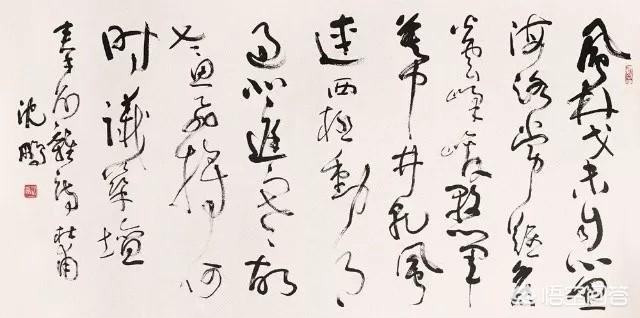 鳳林戈未息魚
海路常難候
火雲峰峻懸軍
幕井乾風
連西極動月
過北庭寒故
老思飛將何
時議築壇
秦州雜詩 杜甫
沈鵬
悟空问答